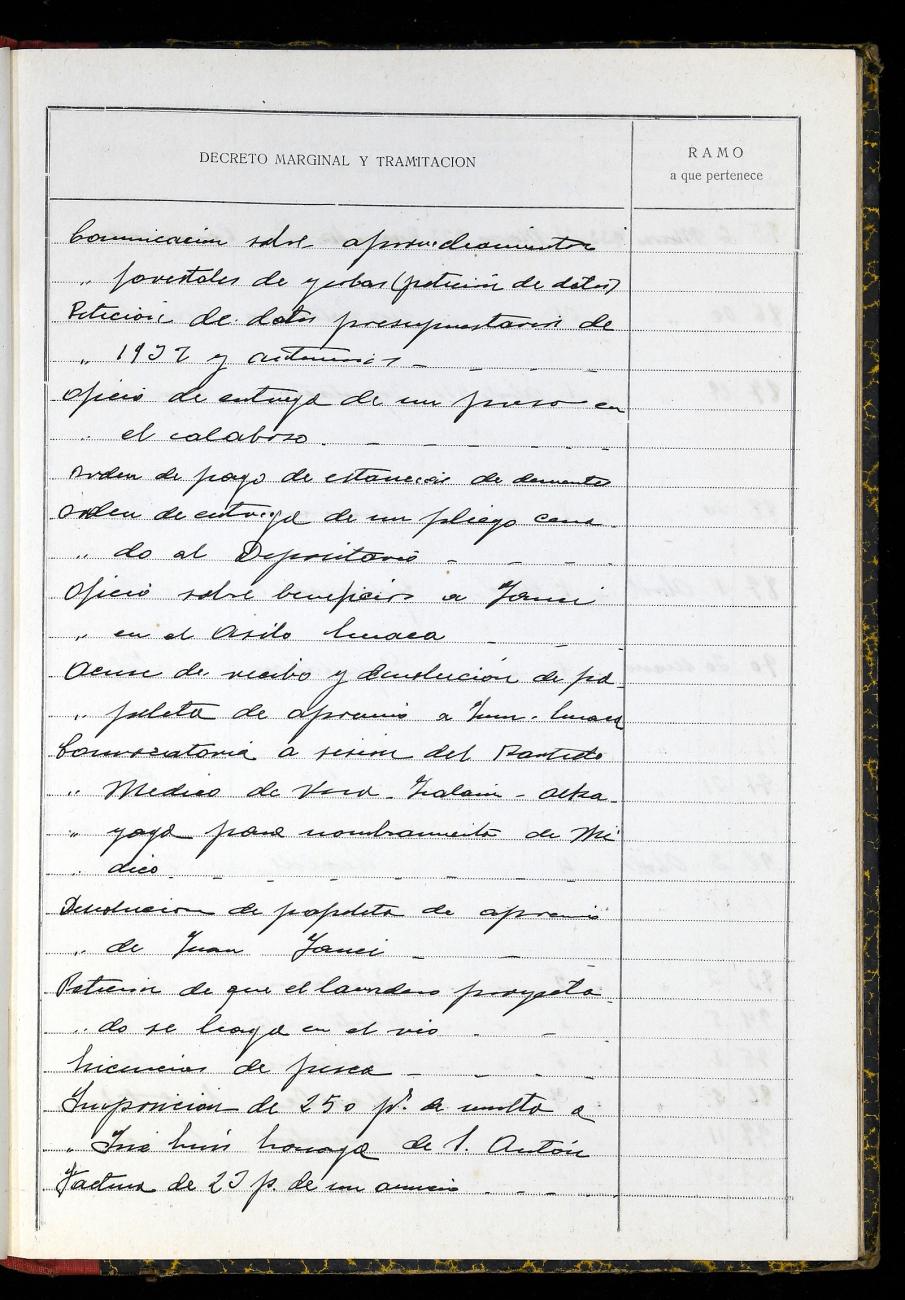 DECRETO MARGINAL Y TRAMITACION
RAMO
a que pertenece
Comunicacion sobre aprovechamientos
" forestales de yerbas (petición de datos)
Petición de datos presupuestarios de
" 1937 y anteriores - - - -
Oficio de entrega de un preso en
" el calabozo. - - - - -
Orden de pago de estancias de demente
Orden de entrega de un pliego cerra-
" do al Depositario - - - -
Oficio sobre beneficios a Yanci
" en el Asilo -
Acuse de recibo y devolución de pa-
" peleta de apremio a Juan
Convocatoria a sesion del Partido
" Medico de Vera - Zalain - Alza-
" yaga para nombramiento de Mé-
" dico. - - - - -
Devolucion de papeleta de apremio
" de Juan Yanci - -
Peticion de que el lavadero proyecta-
" do se haga en el rio - -
Licencias de pesca - - - -
Imposicion de 250 pts. de multa a
" José Luis de S. Antón
Factura de 23 p. de un anuncio - - -